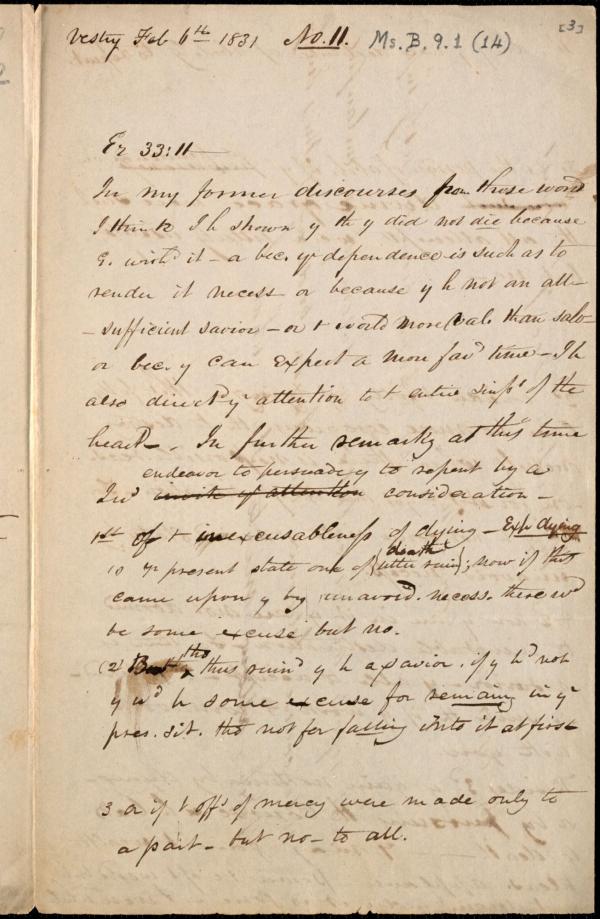 Vestry Feb 6th 1831 No. 11. Ms. B. 9. 1 (14) [3]
Ez 33:11
In my former discourses from those words
I think I h shown y th y did not die because
G. wishd it - or bec. yr dependence is such as to
render it necess or because y h not an all-
-sufficient savior - or t world more val. than salv-
or bec. y can expect a more favd time - I h
also directd yr attention to t entire sinfs of the
heart -. In further remarks at this time
endeavor to persuade y to repent by a
Iwd invite yr attention consideration -
1st of t inexcusableness of dying - Exp dying
death
10 yr present state one of (utter ruin); now if this
came upon y by unavoid. necess. there wd
be some excuse but no.
tho
(2) But thus ruind y h a savior. if y hd not
y wd h some excuse for remaing in yr
pres. sit. tho not for falling into it at first
3 or if t offs of mercy were made only to
a part - but no - to all.